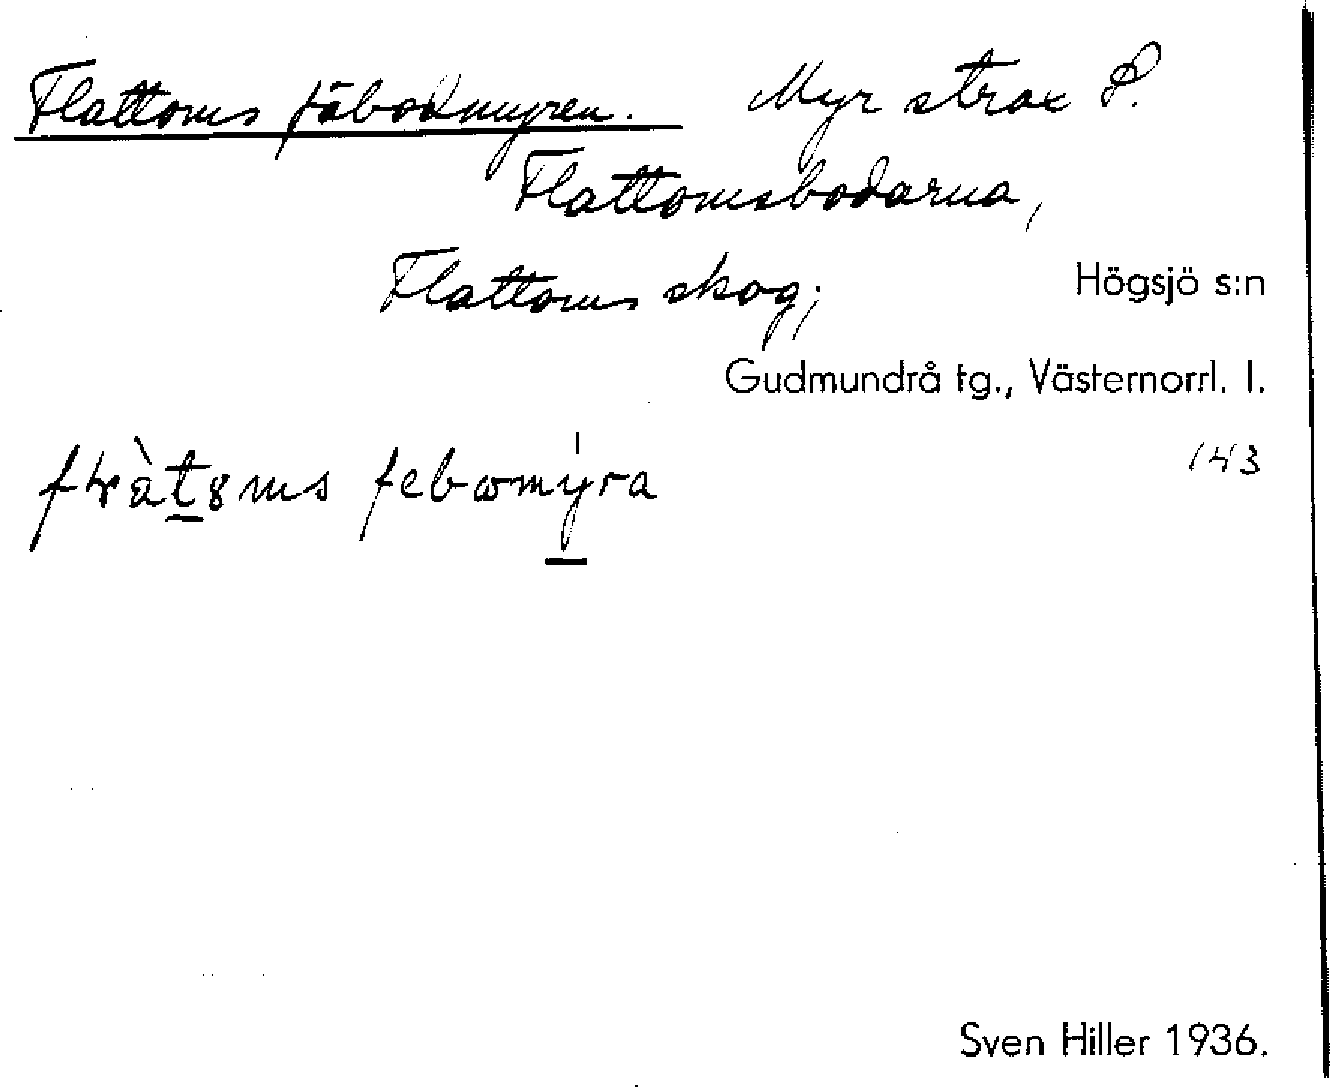 Flattoms fäbodmyren. Myr strax S.
Flattomsbodarna,
Flattoms skog;
Högsjö s:n
Gudmundrå tg., Västernorrl. l.
143
febωmýra
Sven Hiller 1936.